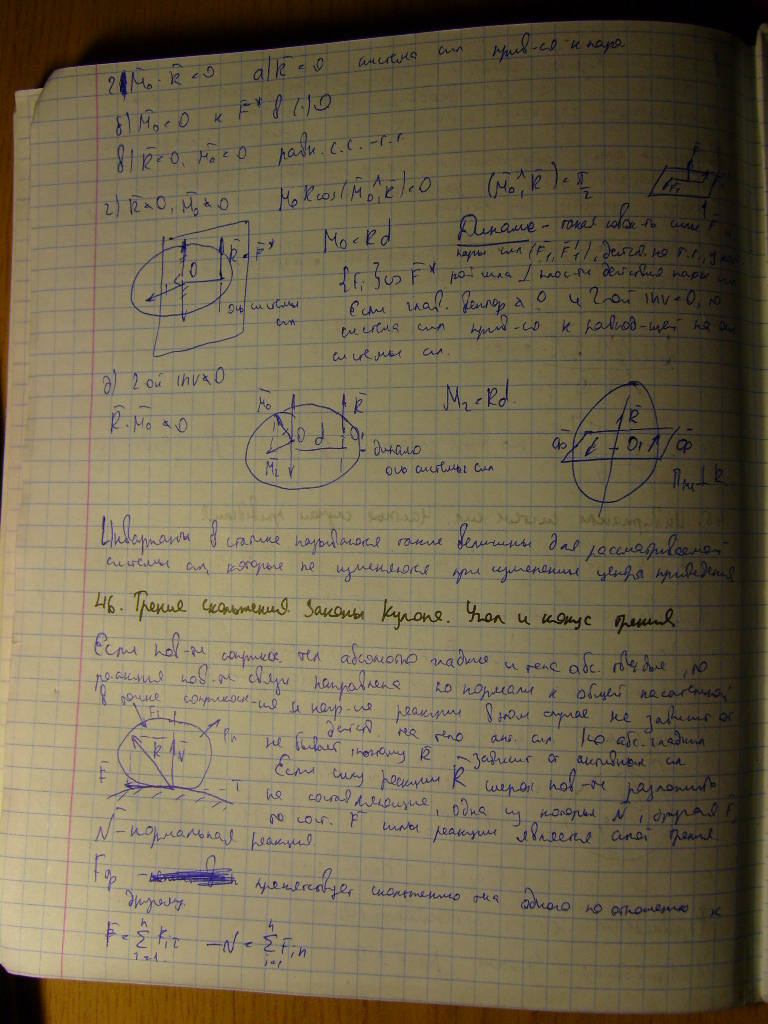 2) M̄₀ · R̄ = 0 а) R̄ = 0 система сил прив-ся к паре
б) M̄₀ = 0 к F̄* в (·) O
в) R̄ = 0, M̄₀ = 0 равн. с.с.
г) R̄ ≠ 0, M̄₀ ≠ 0 M₀ R cos(M̄₀ ^ R̄) = 0 (M̄₀ ^ R̄) = π/2
M₀ = Rd
Динама - такая совок-ть силы F̄ и
пары сил (F̄₁, F̄₁'), действ. на т.т., у кот
{F̄ᵢ} ∞ F̄* рой сила ⊥ плос-ти действия пары сил
R̄ = F̄*
O
ось системы
сил
Если глав. вектор ≠ 0 и 2-ой inv = 0, то
система сил прив-ся к равнод-щей на оси
системы сил.
д) 2-ой inv ≠ 0
R̄ · M̄₀ ≠ 0
M̄₀ R̄
O d O'
M̄₂
динамо
ось системы сил
M₂ = Rd.
R̄
Ф̄ O₁ Ф̄
⊥ R̄
Инварианты в статике называются такие величины для рассматриваемой
системы сил, которые не изменяются при изменении центра приведения
46. Трение скольжения. Законы Кулона. Угол и конус трения
Если пов-ти соприкас. тел абсолютно гладкие и тела абс. твёрдые, то
реакция пов-ти связи направлена по нормали к общей касательной
в точке соприкосн-ия и напр-ие реакции в этом случае не зависит от
действ. на тело акт. сил. Но абс. гладких
не бывает поэтому R̄ - зависит от активных сил
F̄₁ F̄ₙ
R̄ N̄
F̄ τ
Если силу реакции R̄ шерох. пов-ти разложить
на составляющие, одна из которых N̄, другая F̄,
то сост. F̄ силы реакции является силой трения.
N̄ - нормальная реакция.
Fтр - препятствует скольжению тела одного по отношению к
другому.
F̄ = Σⁿᵢ₌₁ Fᵢτ -N = Σⁿᵢ₌₁ F̄ᵢn